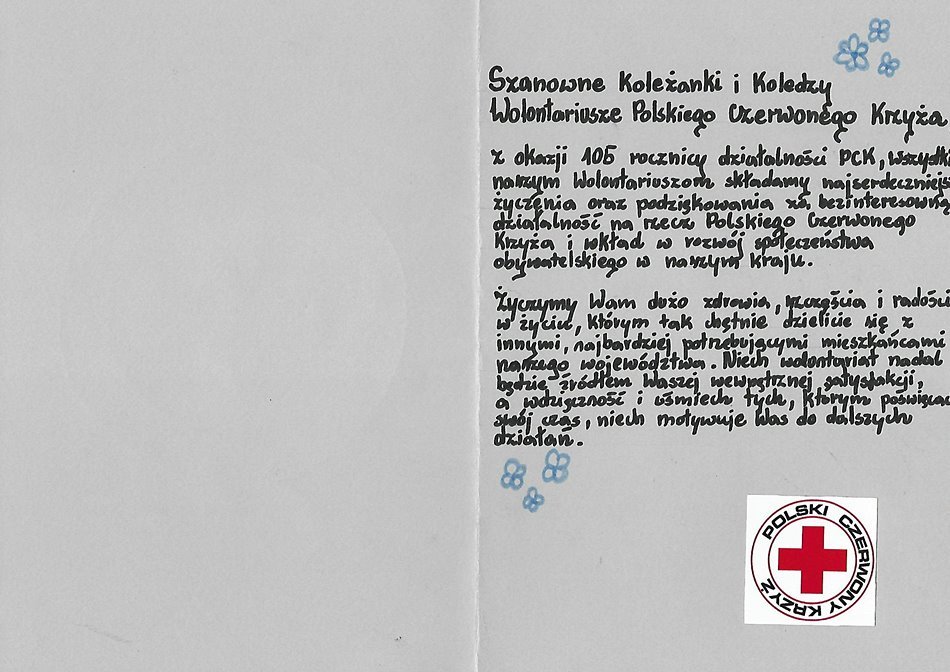 Szanowne Koleżanki i Koledzy
Wolontariusze Polskiego Czerwonego Krzyża
z okazji 105 rocznicy działalności PCK, wszystki
naszym Wolontariuszom składamy najserdeczniejs
życzenia oraz podziękowania za bezinteresowną
działalność na rzecz Polskiego Czerwonego
Krzyża i wkład w rozwój społeczeństwa
obywatelskiego w naszym kraju.
Życzymy Wam dużo zdrowia, szczęścia i radości
w życiu, którym tak chętnie dzielicie się z
innymi, najbardziej potrzebującymi mieszkańcami
naszego województwa. Niech wolontariat nadal
będzie źródłem Waszej wewnętrznej satysfakcji,
a wdzięczność i uśmiech tych, którym poświęcac
swój czas, niech motywuje Was do dalszych
działań.
POLSKI CZERWONY KRZYŻ